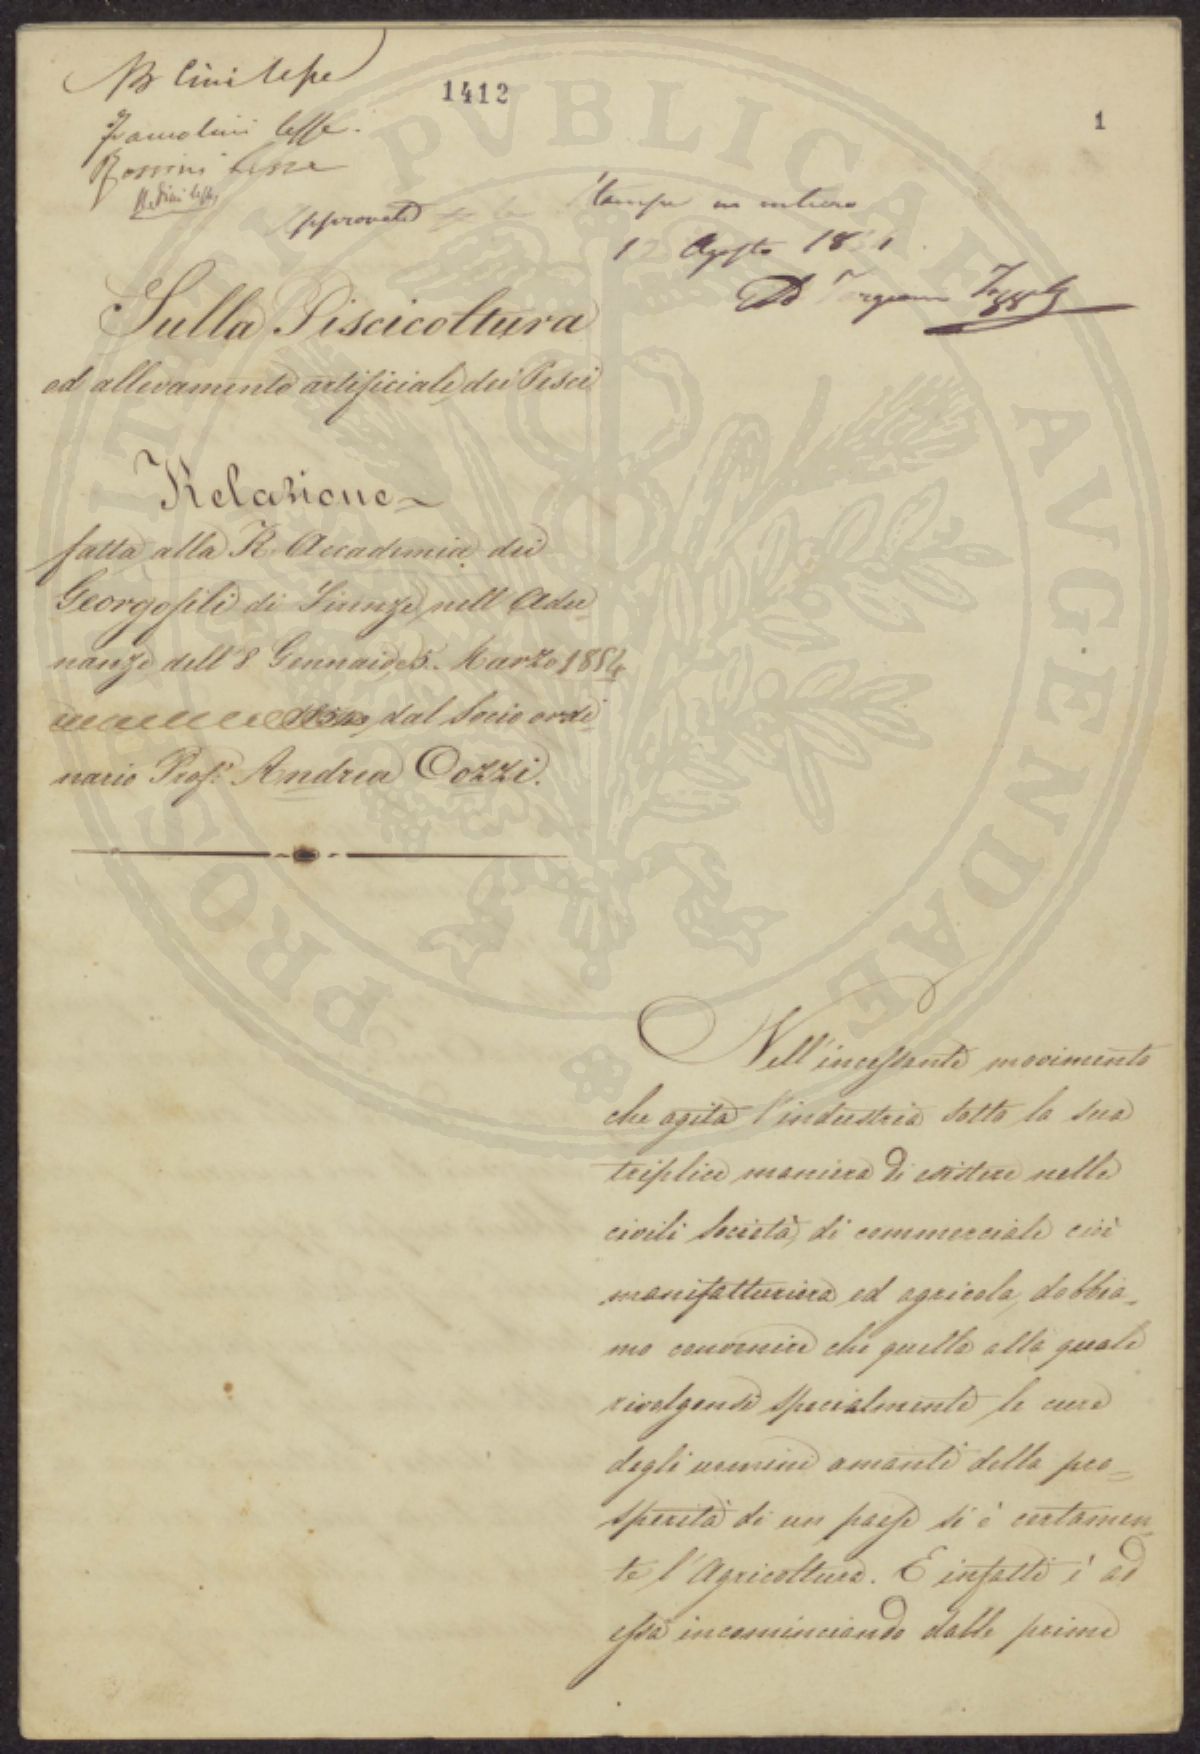 1412
1
Approvato
Stampa in intiero
Agosto
Targioni Tozzetti
Sulla Piscicoltura
od allevamento artificiale dei Pesci
Relazione
fatta alla R. Accademia dei
Georgofili di Firenze nell'Adu=
nanze dell'8 Gennaio, e 5. Marzo 1854
dal Socio ordi=
nario Prof.e Andrea Cozzi.
Nell'incessante movimento
che agita l'industria sotto la sua
triplice maniera di esistere nelle
civili Società, di commerciale cioè
manifatturiera ed agricola, dobbia=
mo convenire che quella alla quale
rivolgonsi specialmente le cure
degli uomini amanti della pro=
sperità di un paese si è certamen=
te l'Agricoltura. E infatti è ad
essa incominciando dalle prime
PROSPERITATI PVBLICAE AVGENDAE